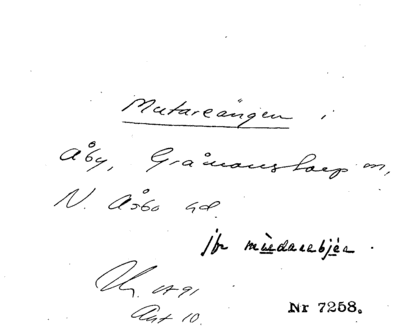 Mutareängen i
Åby, Gråmanstorp sn,
N. Åsbo hd.
jfr mùdarebjér.
1891
Ant 10.
Nr 7258.